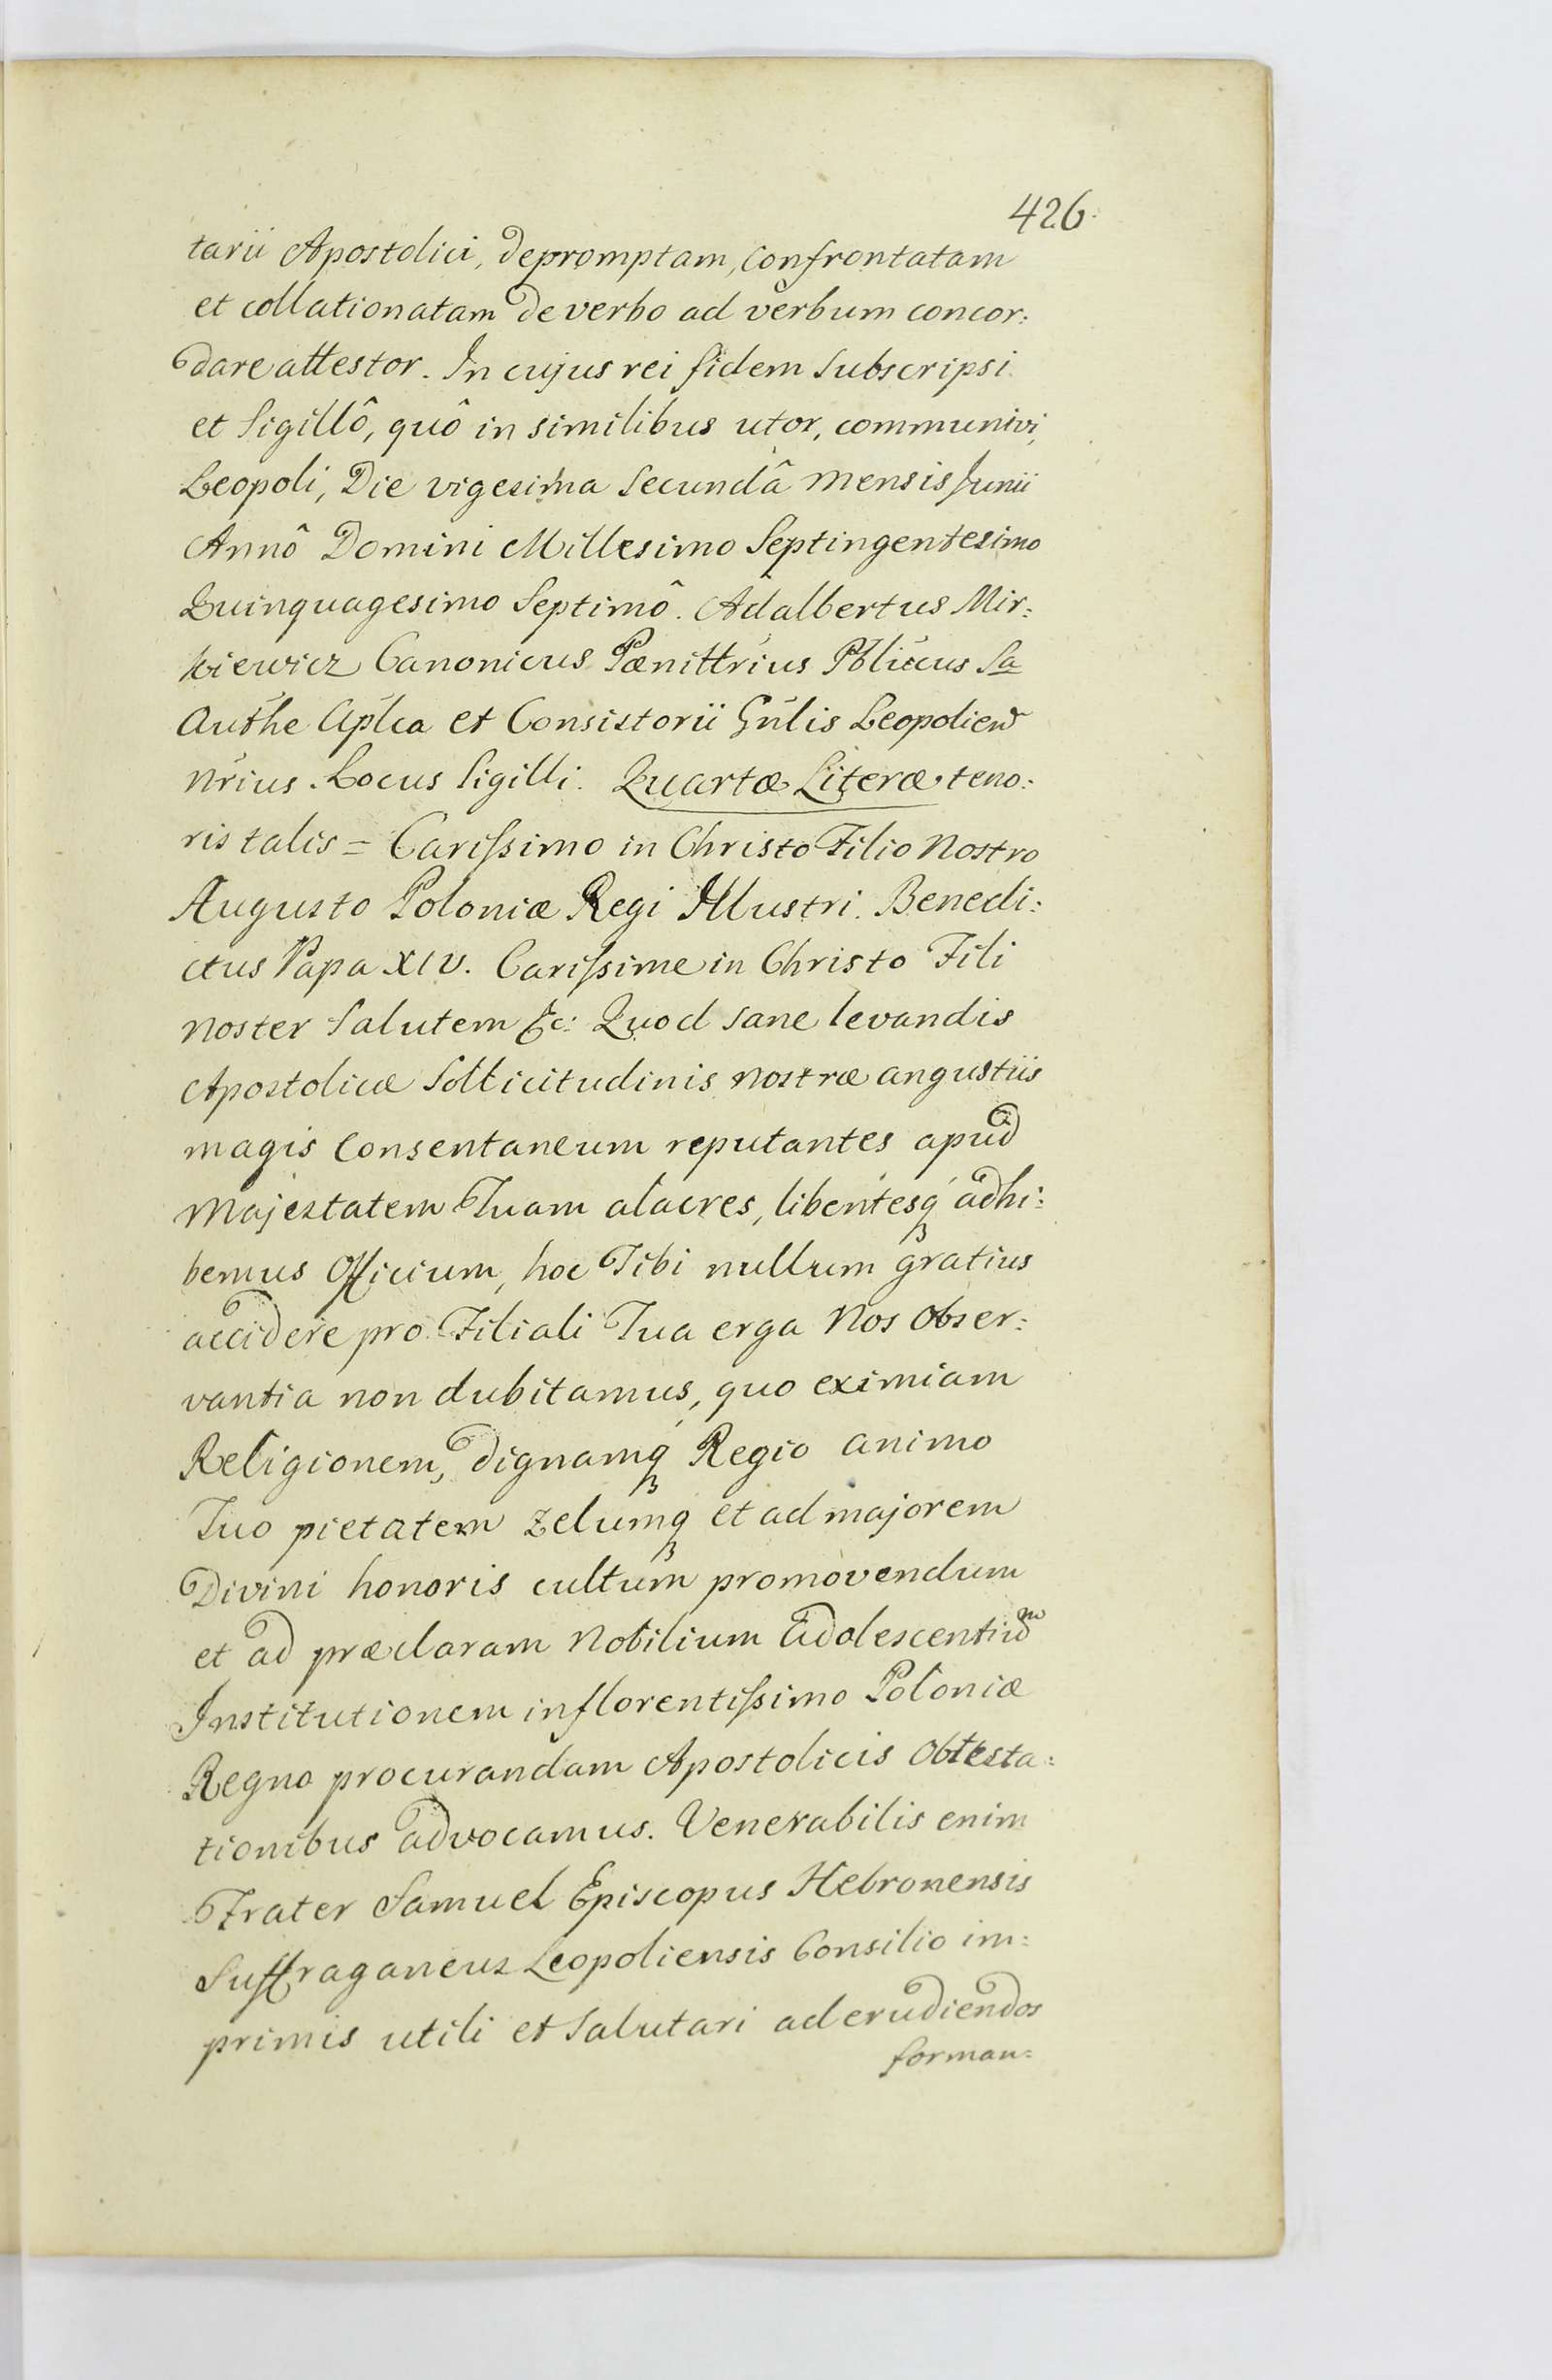 426.
tarii Apostolici, depromptam, confrontatam
et collationatam de verbo ad verbum concor:
dare attestor. In cujus rei fidem subscripsi
et Sigillô, quô in similibus utor, communivi,
Leopoli, Die vigesima Secundâ mensis Junii
Annô Domini Millesimo Septingentesimo
Quinquagesimo Septimô. Adalbertus Mir:
kiewicz Canonicus Pœnittrius Pblicus Sa
Authe Aplca et Consistorii Gnlis Leopolien
Nrius. Locus Sigilli. Quartæ Literæ teno:
ris talis = Carissimo in Christo Filio Nostro
Augusto Poloniæ Regi Illustri. Benedi:
ctus Papa XIV. Carissime in Christo Fili
noster Salutem &c: Quod sane levandis
Apostolicæ Sollicitudinis nostræ angustiis
magis consentaneum reputantes apud
Majestatem Tuam alacres, libentesq́ adhi:
bemus Officium, hoc Tibi nullum gratius
accidere pro Filiali Tua erga Nos obser:
vantia non dubitamus, quo eximiam
Religionem, dignamq́ Regio animo
Tuo pietatem zelumq́ et ad majorem
Divini honoris cultum promovendum
et ad præclaram Nobilium Adolescentiũm
Institutionem in florentissimo Poloniæ
Regno procurandam Apostolicis obtesta:
tionibus advocamus. Venerabilis enim
Frater Samuel Episcopus Hebronensis
Suffraganeus Leopoliensis Consilio im:
primis utili et salutari ad erudiendos
forman: